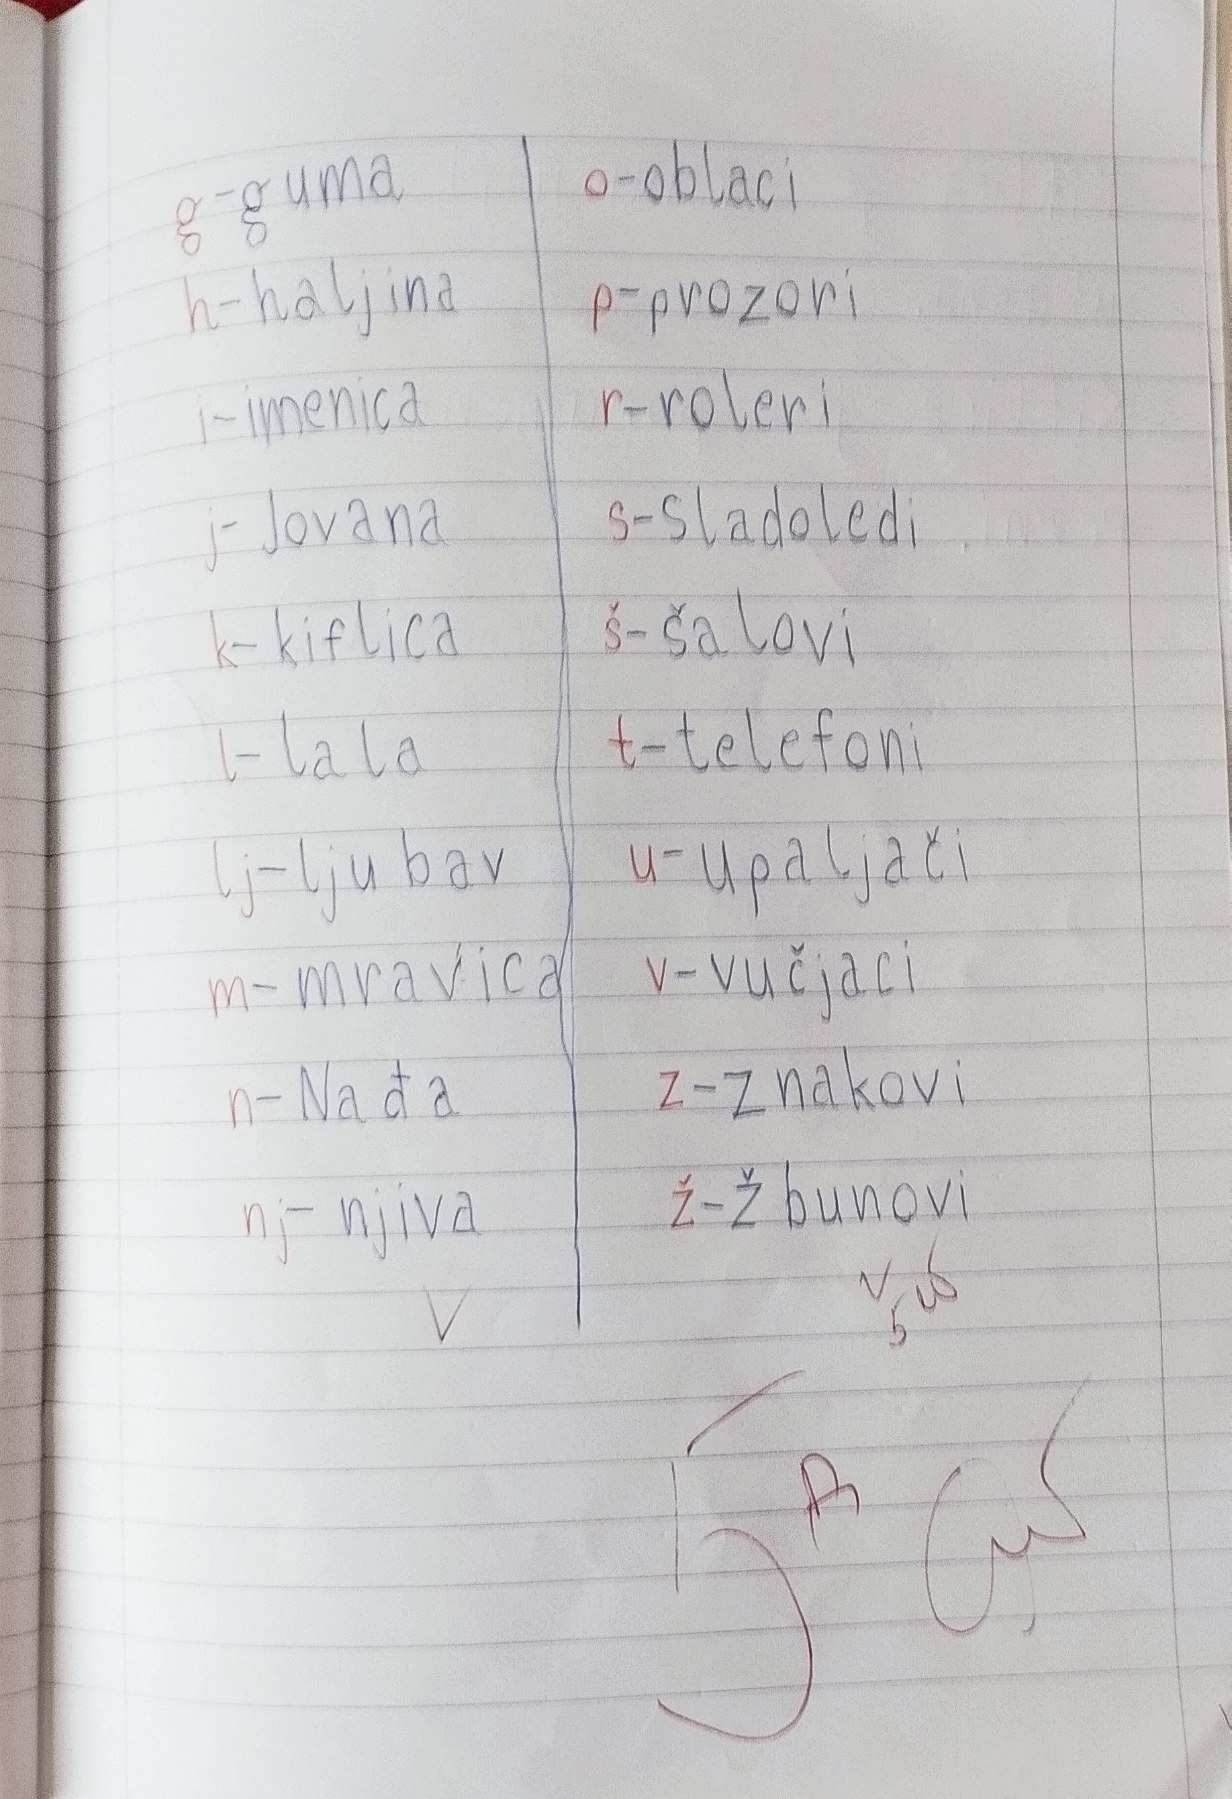 g-guma
h-haljina
i-imenica
j-Jovana
k-kiflica
l-lala
lj-ljubav
m-mravica
n-Nađa
nj-njiva
V
o-oblaci
p-prozori
r-roleri
s-sladoledi
š-šalovi
t-telefoni
u-upaljači
v-vučjaci
z-znakovi
ž-žbunovi
V
5
5